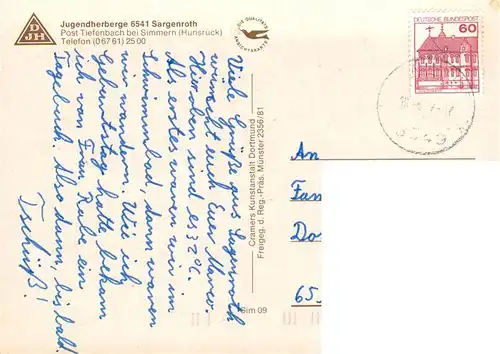 Jugendherberge 6541 Sargenroth
Post Tiefenbach bei Simmern (Hunsrück)
Telefon (0 67 61) 25 00
DJH
DIE QUALITÄTS
ANSICHTSKARTE
DEUTSCHE BUNDESPOST
60
Viele Grüße aus Sargenroth
wünscht euch Euer Marco.
Hier oben sind es 32°C.
Als erstes waren wir im
Schwimmbad, dann waren
wir wandern. Wie ich
Geburtstag hatte bekam
ich von Frau Rabe ein
Tagebuch. Also dann, bis bald.
Tschüß!
Cramers Kunstanstalt Dortmund
Freigeg. d. Reg.-Präs. Münster 2356/81
Sim 09
An
Fam
Do
65